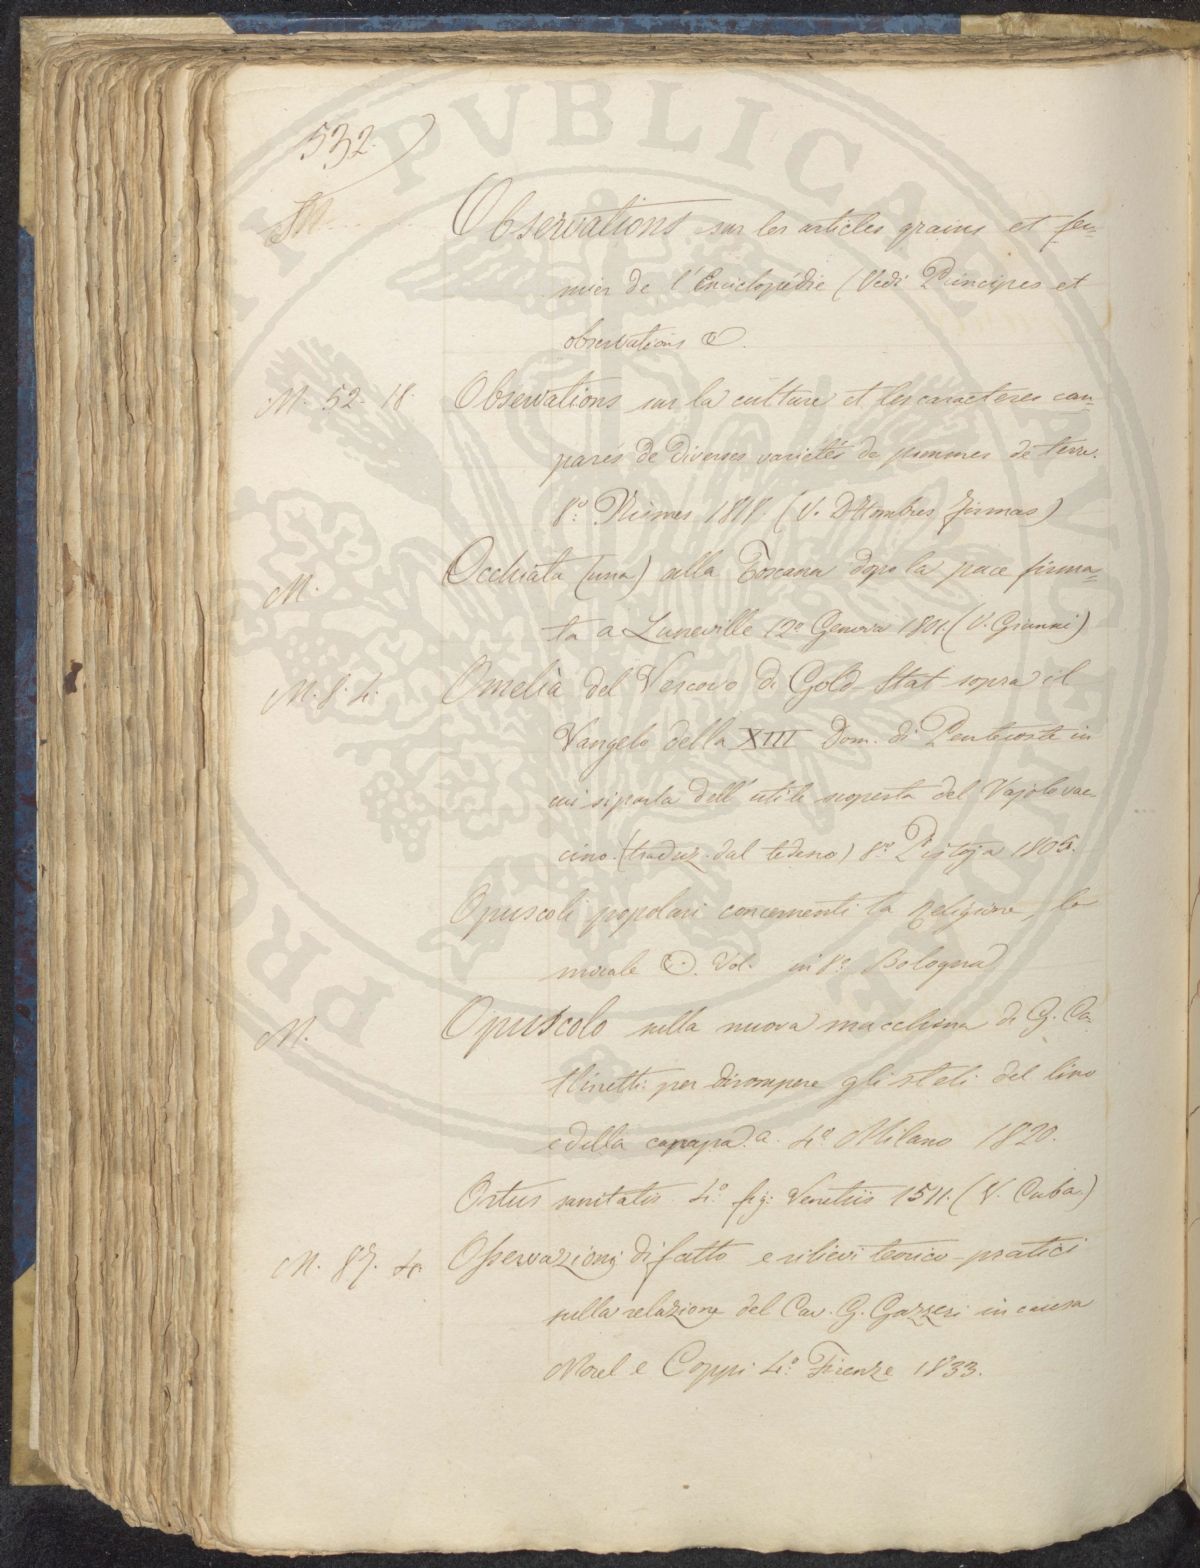 532.
M.
Observations sur les articles grains et fer-
mier de l'Enciclopédie (Vedi Principes et
observations &.
M. 52. 18. Observations sur la culture et les caracteres com
parés de diverses varietés de pommes de terre.
8º Nismes 1811 (V. D'Hombres Firmas)
M. Occhiata (una) alla Toscana dopo la pace firma-
ta a Luneville 12º Genova 1801. (V. Gianni)
M. 8. 4. Omelia del Vescovo di Gold-Stat sopra il
Vangelo della XIII Dom. di Pentecoste in
cui si parla dell'utile scoperta del Vajolo vac
cino. (traduz. dal tedesco) 8º Pistoja 1805.
Opuscoli popolari concernenti la Religione, la
morale &. Vol. in 8º Bologna
M. Opuscolo sulla nuova macchina di G. Ca-
tlinetti per dirompere gli steli del lino
e della canapa. 4º Milano 1820.
Ortus sanitatis 4º fig: Venetiis 1511. (V. Cuba)
M. 87. 4. Osservazioni di fatto e rilievi teorico-pratici
sulla relazione del Cav. G. Gazzeri in causa
Morel e Coppi 4º Firenze 1833.
PUBLICAE